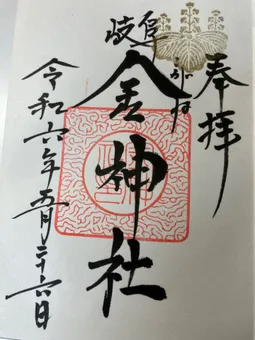 奉拝
岐阜
金神社
こがね
令和六年五月二十六日